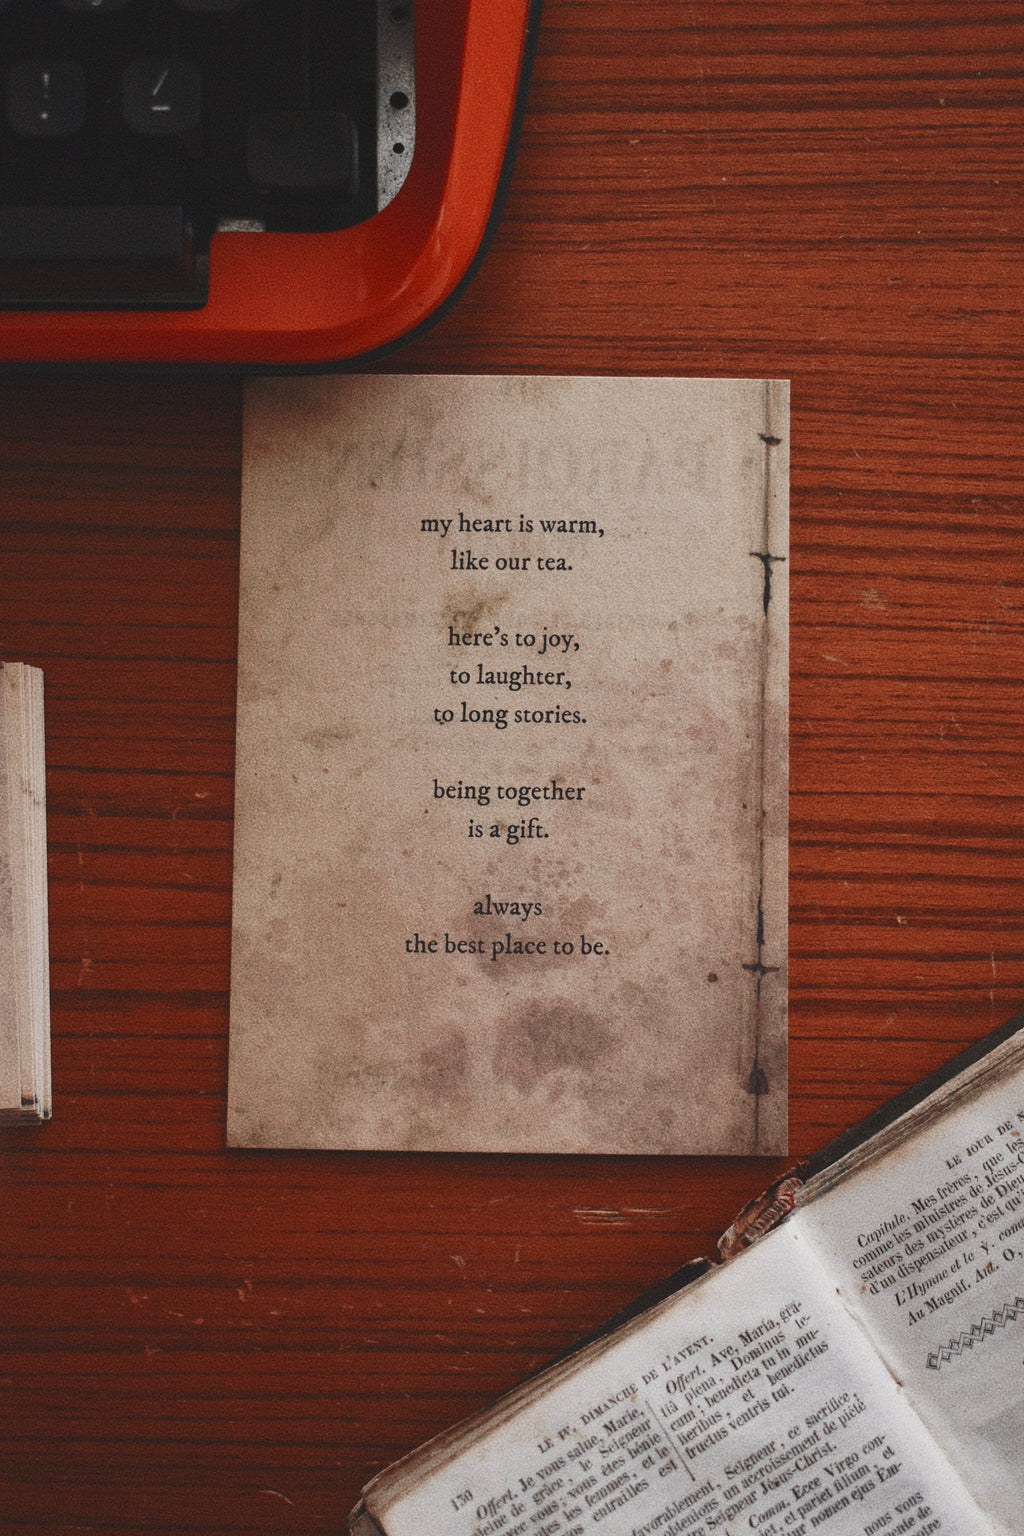 my heart is warm,
like our tea.
here's to joy,
to laughter,
to long stories.
being together
is a gift.
always
the best place to be.
LE JOUR DE
Capitule. Mes frères, que les
comme les ministres de Jésus-
sateurs des mystères de Dieu
d'un dispensateur, c'est qu'
L'Hymne et le ℣.
Au Magnif. Ant. O,
130
LE IV. DIMANCHE DE L'AVENT.
Offert. Je vous salue, Marie,
pleine de grâce, le Seigneur
avec vous; vous êtes bénie
les femmes, et le
entrailles est
Offert. Ave, Maria, grâ-
tiâ plena, Dominus te-
cum; benedicta tu in mu-
lieribus, et benedictus
fructus ventris tui.
favorablement, Seigneur, ce sacrifice,
obtenions un accroissement de piété
Seigneur Jésus-Christ.
Comm. Ecce Virgo con-
et pariet filium, et
nomen ejus Em-
nous vous